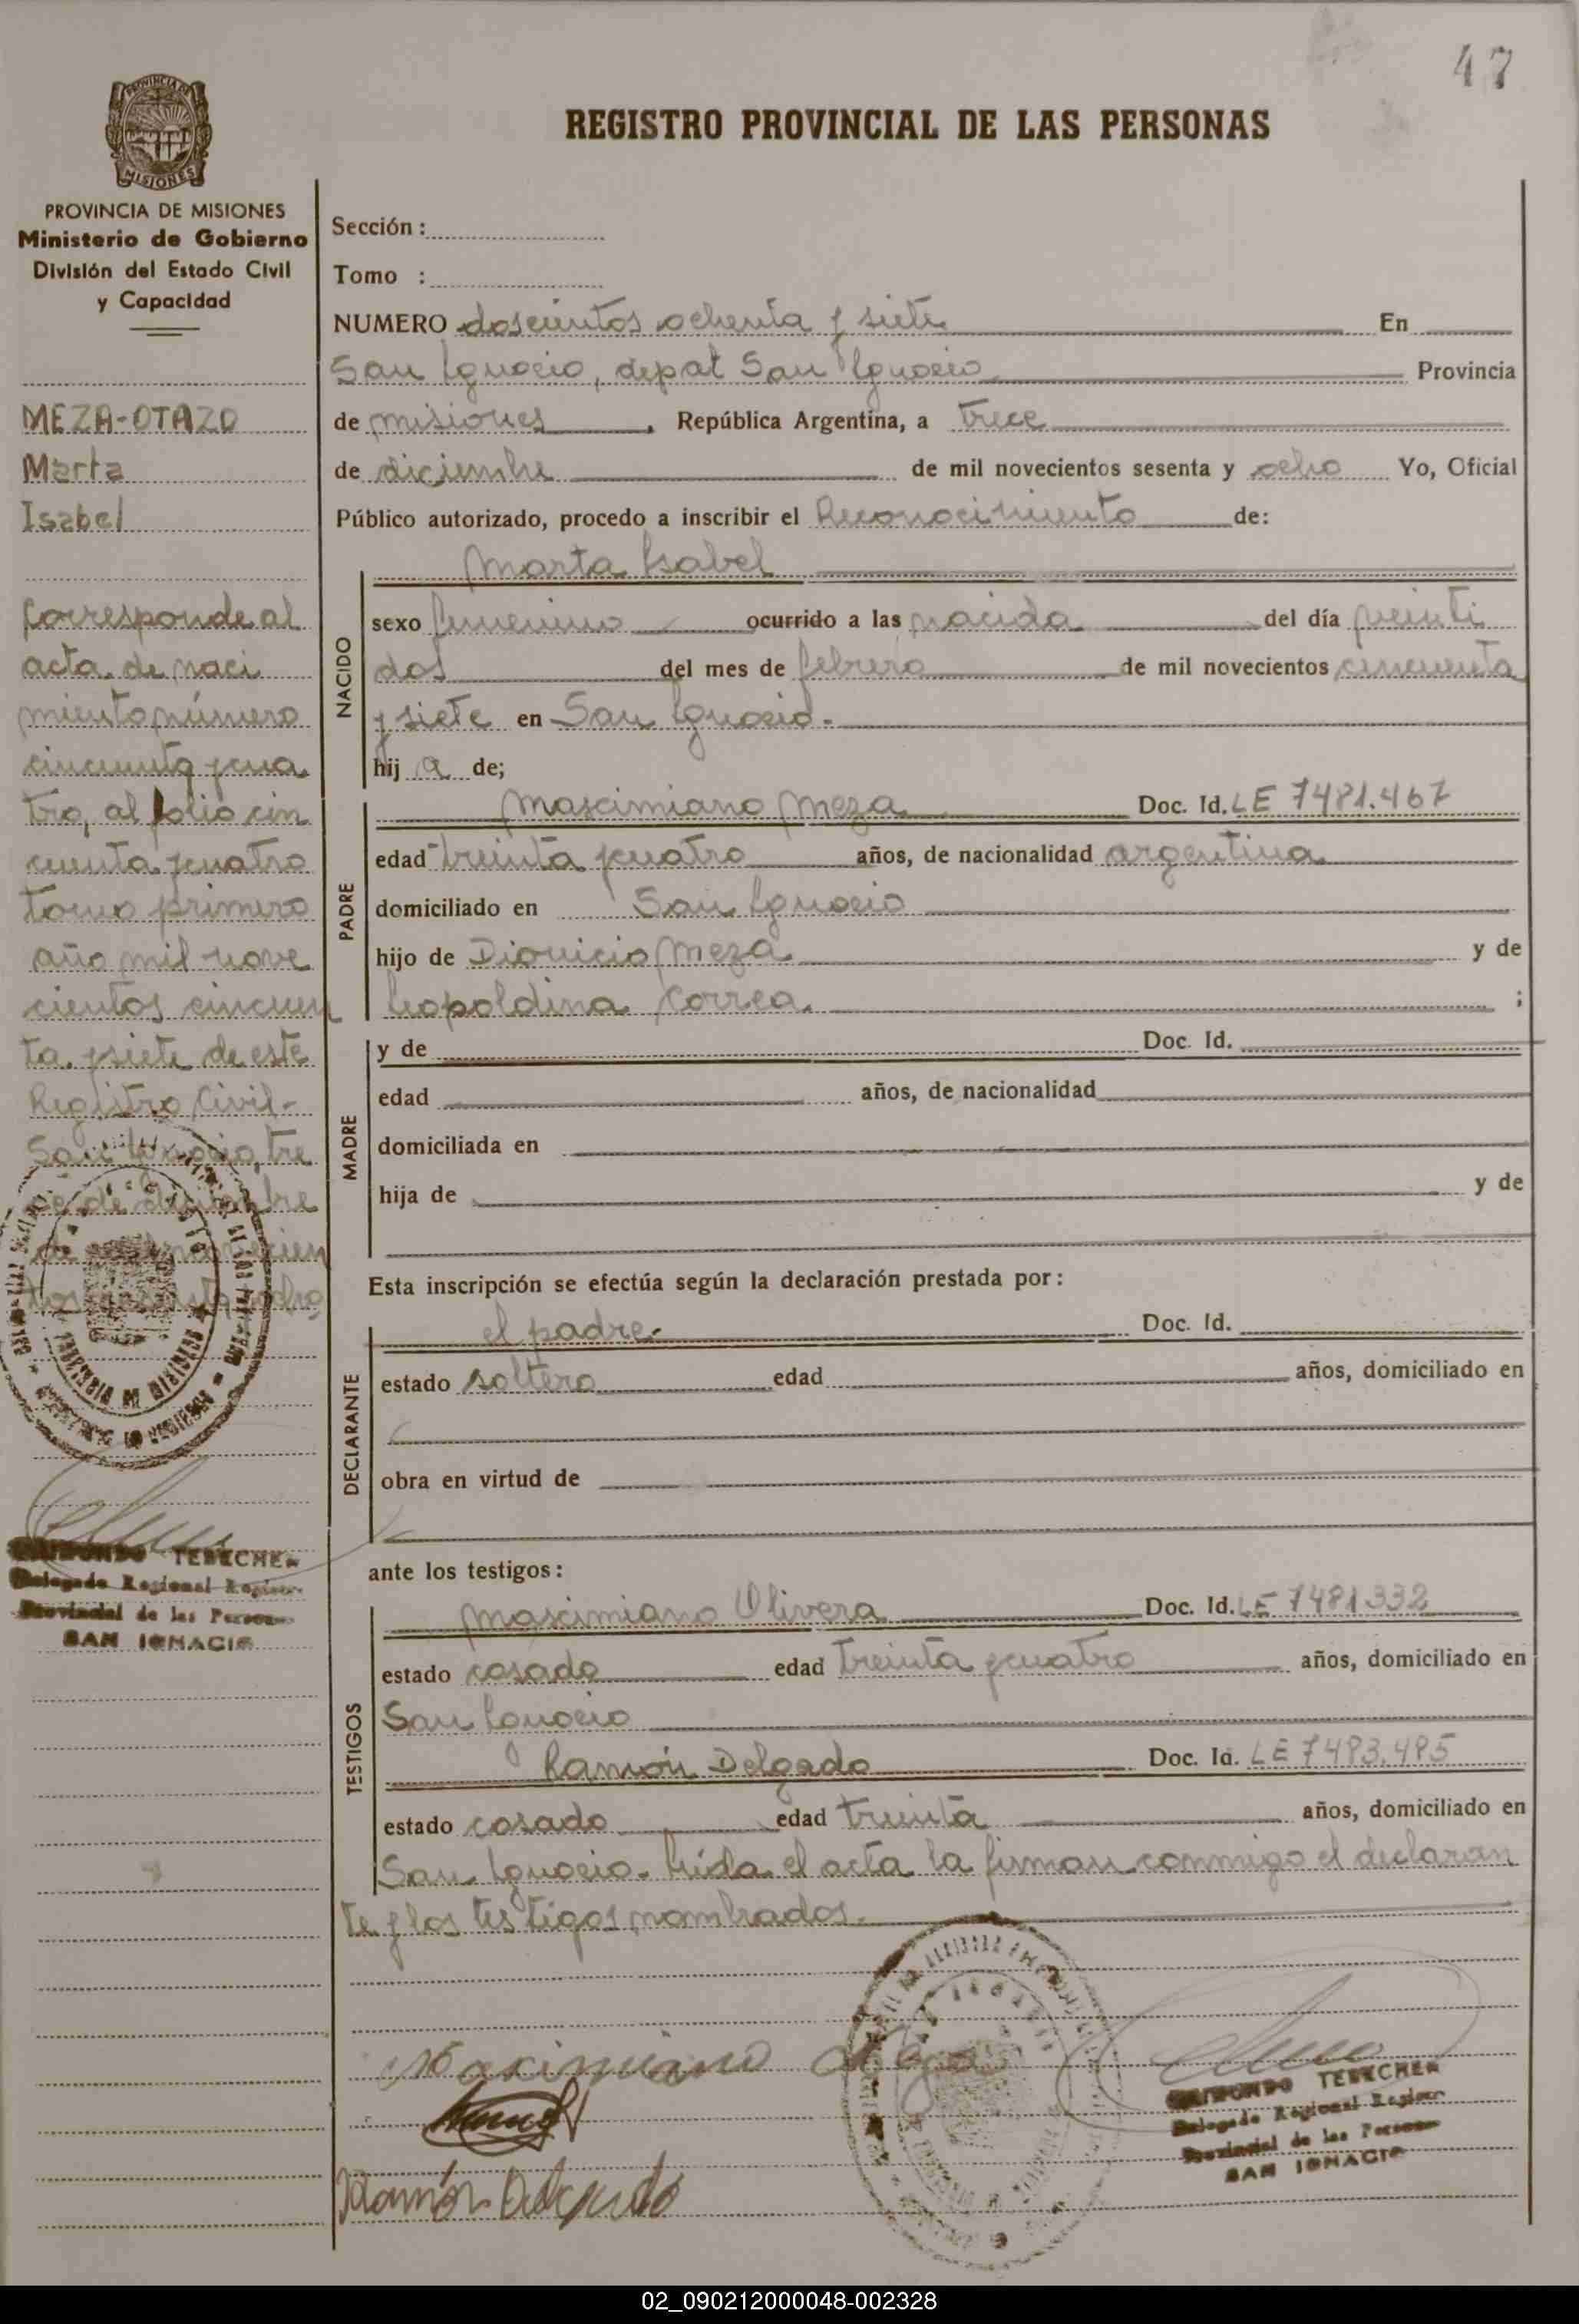 47
PROVINCIA DE MISIONES
REGISTRO PROVINCIAL DE LAS PERSONAS
PROVINCIA DE MISIONES
Ministerio de Gobierno
División del Estado Civil
y Capacidad
MEZA-OTAZO
Marta
Isabel
Corresponde al
acta de naci
miento número
cincuenta y cua
tro, al folio cin
cuenta y cuatro
tomo primero
año mil nove
cientos cincuen
ta y siete de este
Registro Civil-
San Ignacio, tre
ce de diciembre
de novecien
tos sesenta y ocho
TERECHEN
Delegado Regional
Provincial de las Personas
SAN IGNACIO
Sección :
Tomo :
NUMERO doscientos ochenta y siete En
San Ignacio, depat San Ignacio Provincia
de misiones, República Argentina, a trece
de diciembre de mil novecientos sesenta y ocho Yo, Oficial
Público autorizado, procedo a inscribir el Reconocimiento de:
NACIDO
Marta Isabel
sexo femenino ocurrido a las nacida del día veinti
dos del mes de febrero de mil novecientos cincuenta
y siete en San Ignacio.-
hij a de;
PADRE
Mascimiano Meza Doc. Id. LE 7481.467
edad treinta y cuatro años, de nacionalidad argentina
domiciliado en San Ignacio
hijo de Dionicio Meza y de
Leopoldina Correa ;
MADRE
y de Doc. Id.
edad años, de nacionalidad
domiciliada en
hija de y de
Esta inscripción se efectúa según la declaración prestada por :
DECLARANTE
el padre- Doc. Id.
estado soltero edad años, domiciliado en
obra en virtud de
ante los testigos :
TESTIGOS
Mascimiano Olivera Doc. Id. LE 7481332
estado casado edad treinta y cuatro años, domiciliado en
San Ignacio
Ramón Delgado Doc. Id. LE 7493.495
estado casado edad treinta años, domiciliado en
San Ignacio. Leída el acta la firman conmigo el declaran
te y los testigos nombrados.
Maximiano Meza
Ramón Delgado
TERECHEN
Delegado Regional
Provincial de las Personas
SAN IGNACIO
02_090212000048-002328